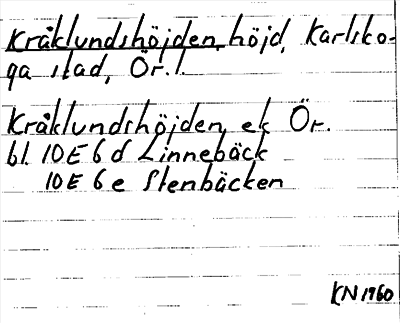 Kråklundshöjden, höjd, Karlsko-
ga stad, Ör. l.
Kråklundshöjden ek Ör.
bl. 10E6d Linnebäck
10E6e Stenbäcken
KN1960